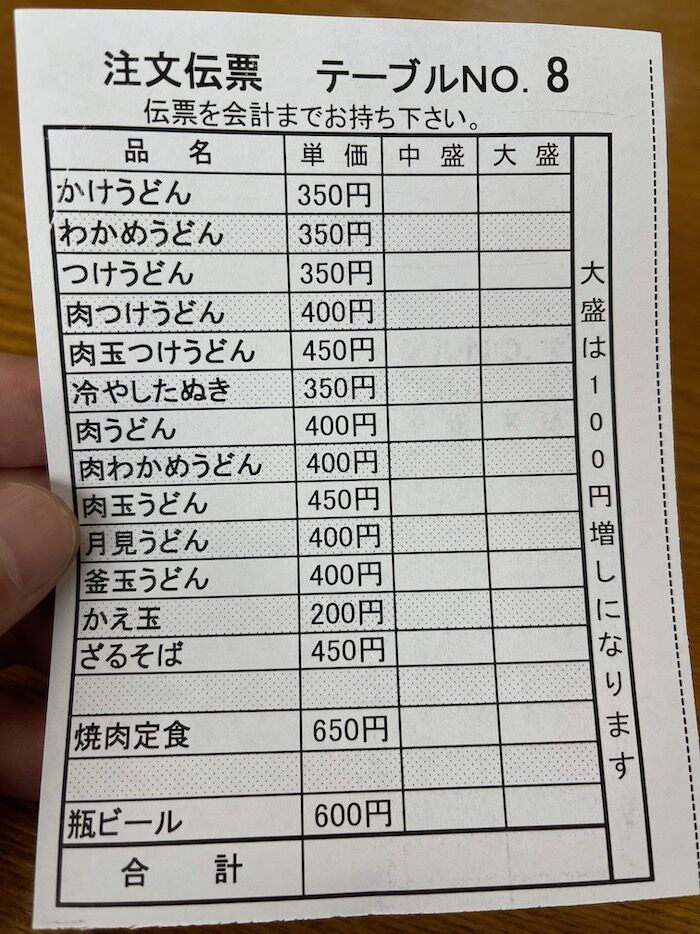 注文伝票 テーブルNO. 8
伝票を会計までお持ち下さい。
品名 単価 中盛 大盛
かけうどん 350円
わかめうどん 350円
つけうどん 350円
肉つけうどん 400円
肉玉つけうどん 450円
冷やしたぬき 350円
肉うどん 400円
肉わかめうどん 400円
肉玉うどん 450円
月見うどん 400円
釜玉うどん 400円
かえ玉 200円
ざるそば 450円
焼肉定食 650円
瓶ビール 600円
合計
大盛は100円増しになります